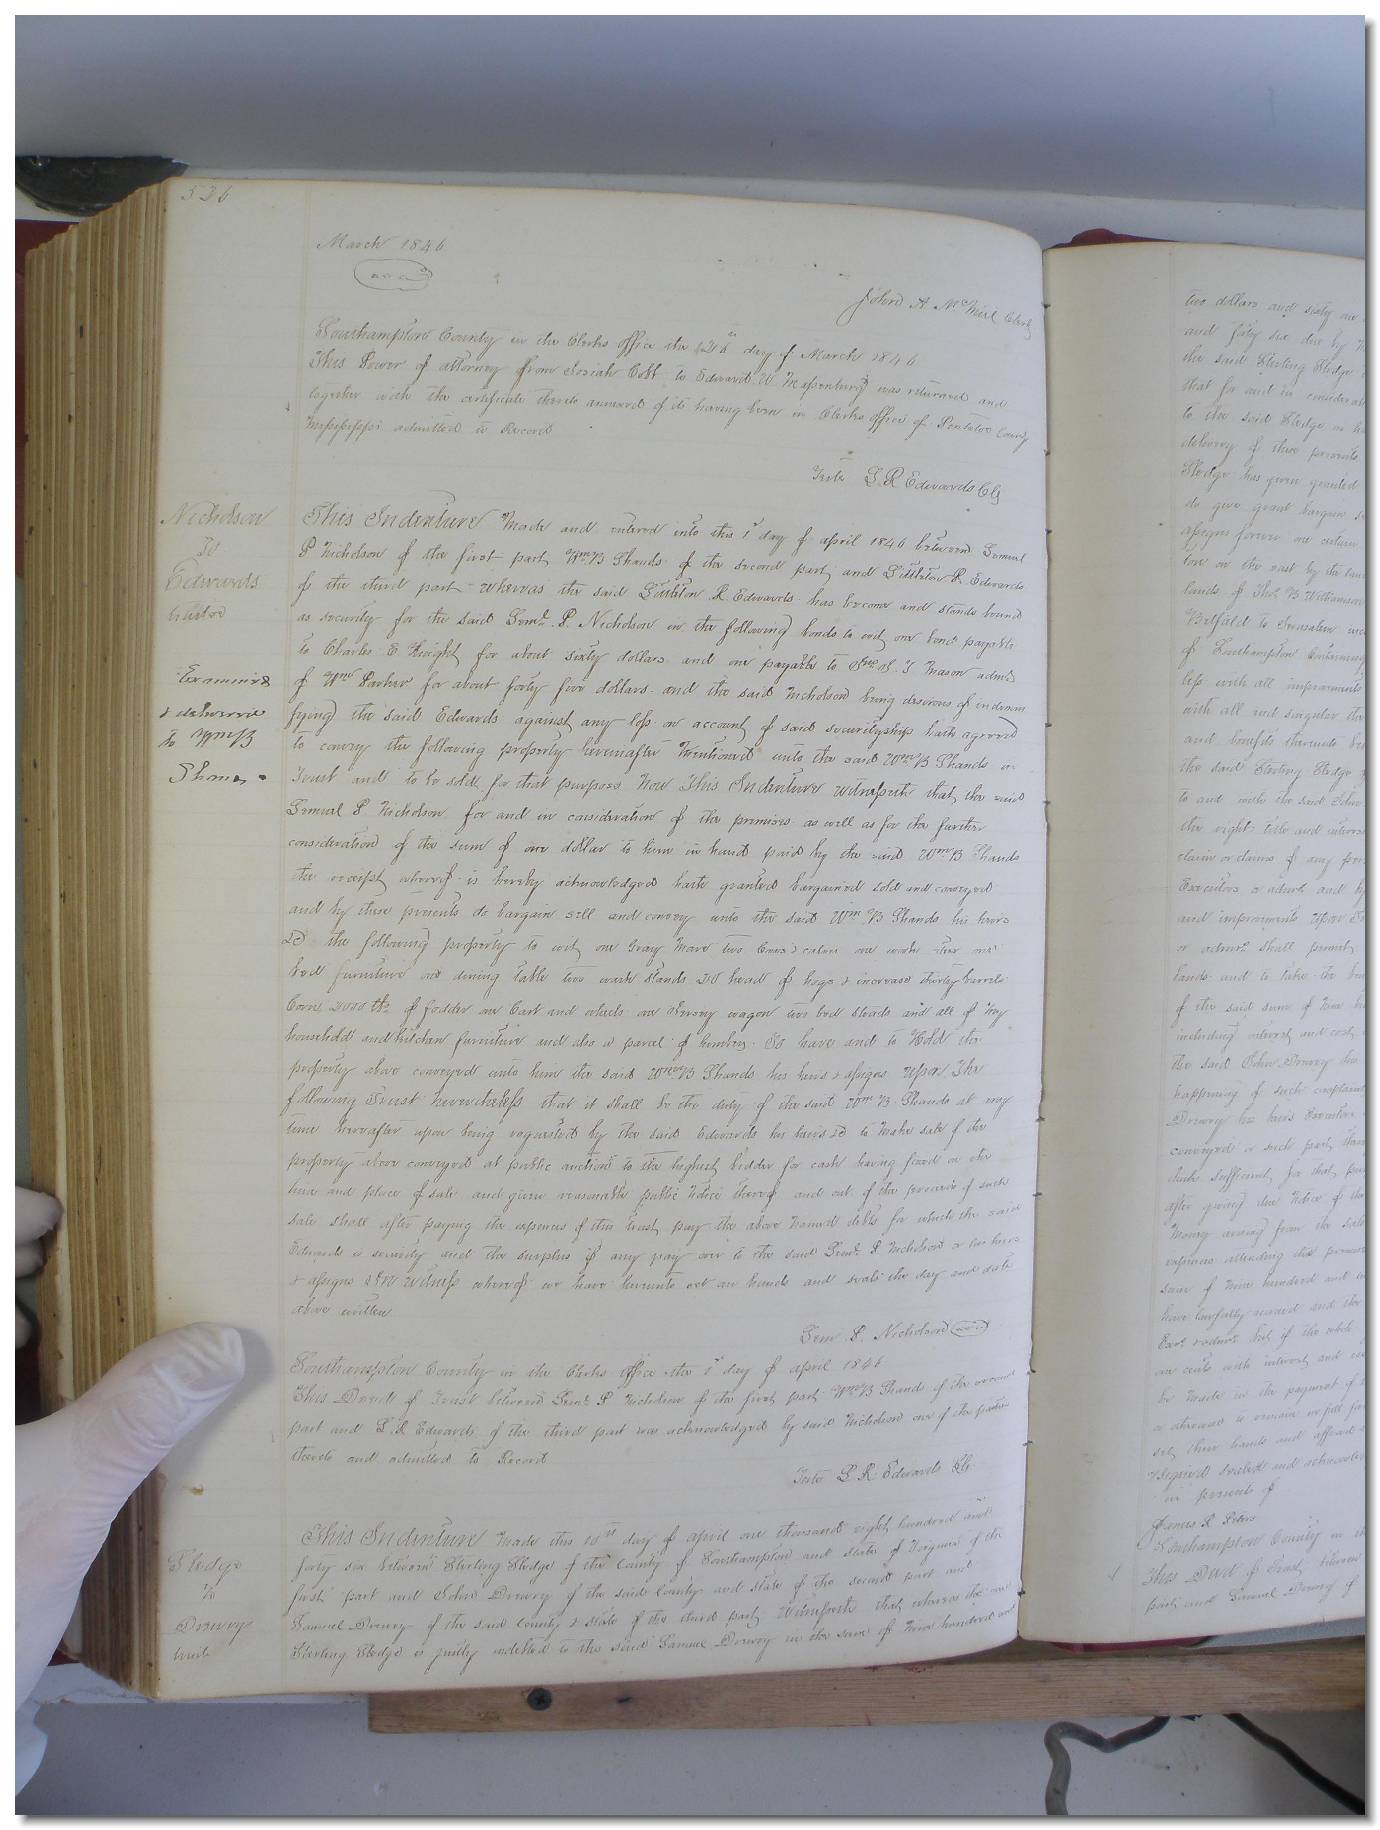 536
March 1846
John A McNeil Clerk
Southampton County in the Clerks office the 26 day of March 1846
This Power of attorney from Josiah Cobb to Edward W Massenburg was returned and
together with the certificate thereto annexed of its having been in Clerks office of Pontotoc County
Mississippi admitted to Record
Teste L R Edwards Clk
Nicholson
To
Edwards
Trustee
Examined
& delivered
to Wm B
Shands
This Indenture Made and entered into this 1st day of april 1846 between Lemuel
P Nicholson of the first part, Wm B Shands of the second part, and Littleton R Edwards
of the third part Whereas the said Littleton R Edwards has become and stands bound
as security for the said Leml P. Nicholson in the following bonds to wit, one bond payable
to Charles E Knight for about sixty dollars and one payable to T Mason admr
of Wm Parker for about forty five dollars and the said Nicholson being desirous of indemni
fying the said Edwards against any loss on account of said securityship hath agreed
to convey the following property hereinafter Mentioned unto the said Wm B Shands in
Trust and to be sold for that purpose Now This Indenture Witnesseth that the said
Lemuel P Nicholson for and in consideration of the premises as well as for the further
consideration of the sum of one dollar to him in hand paid by the said Wm B Shands
the receipt whereof is hereby acknowledged hath granted bargained sold and conveyed
and by these presents do bargain sell and convey unto the said Wm B Shands his heirs
&c the following property to wit, one Gray Mare two Cows & calves one work steer one
bed furniture one dining table two wash stands 20 head of hogs & increase thirty barrels
Corn 2000 lbs of fodder one Cart and wheels one Jersey wagon two bed steads and all of my
household and kitchen furniture and also a parcel of lumber. To have and to Hold the
property above conveyed unto him the said Wm B Shands his heirs & assigns Upon The
following Trust nevertheless that it shall be the duty of the said Wm B Shands at any
time hereafter upon being requested by the said Edwards his heirs &c to make sale of the
property above conveyed at public auction to the highest bidder for cash having fixed on the
time and place of sale and given reasonable public Notice thereof and out of the proceeds of such
sale shall after paying the expences of this trust, pay the above Named debts for which the said
Edwards is security and the surplus if any pay over to the said Leml P Nicholson or his heirs
& assigns In Witness whereof we have hereunto set our hands and seals the day and date
above written
Lem. P. Nicholson
Southampton County in the Clerks office the 1st day of april 1846
This Deed of Trust between Leml P Nicholson of the first part Wm B Shands of the second
part and L R Edwards of the third part was acknowledged by said Nicholson one of the parties
thereto and admitted to Record
Teste L R Edwards Clk
Sledge
To
Drewry
This Indenture Made this 10th day of april one thousand eight hundred and
forty six between Sterling Sledge of the County of Southampton and State of Virginia of the
first part and John Drewry of the said County and state of the second part and
Samuel Drewry of the said County & state of the third part, Witnesseth that whereas the said
Sterling Sledge is justly indebted to the said Samuel Drewry in the sum of Nine hundred and
two dollars and sixty
and forty six due by
the said Sterling Sledge
that for and in consideration
to the said Sledge in
delivery of these presents
Sledge has given granted
do give grant bargain
assigns forever one certain
line on the east by the land
lands of Thos B Williamson
Belfield to Jerusalem
of Southampton Containing
less with all improvements
with all and singular the
and benefits thereunto
the said Sterling Sledge
to and with the said John
the right title and interest
claim or claims of any
Executors or admrs and
and improvements upon
or admrs shall permit
lands and to take the
of the said sum of Nine
including interest and costs
the said John Drewry his
happening of such
Drewry his heirs Executors
conveyed or such part
sufficient for that
after giving due Notice of
Money arising from the sale
expences attending the
sum of Nine hundred and
have lawfully
but if the whole
cents with interest and
be Made in the payment of
or otherwise to remain in full
set their hands and affixed
Signed sealed and acknowledged
in presence of
James R
Southampton County in
This Deed of Trust between
part, and Samuel Drewry of